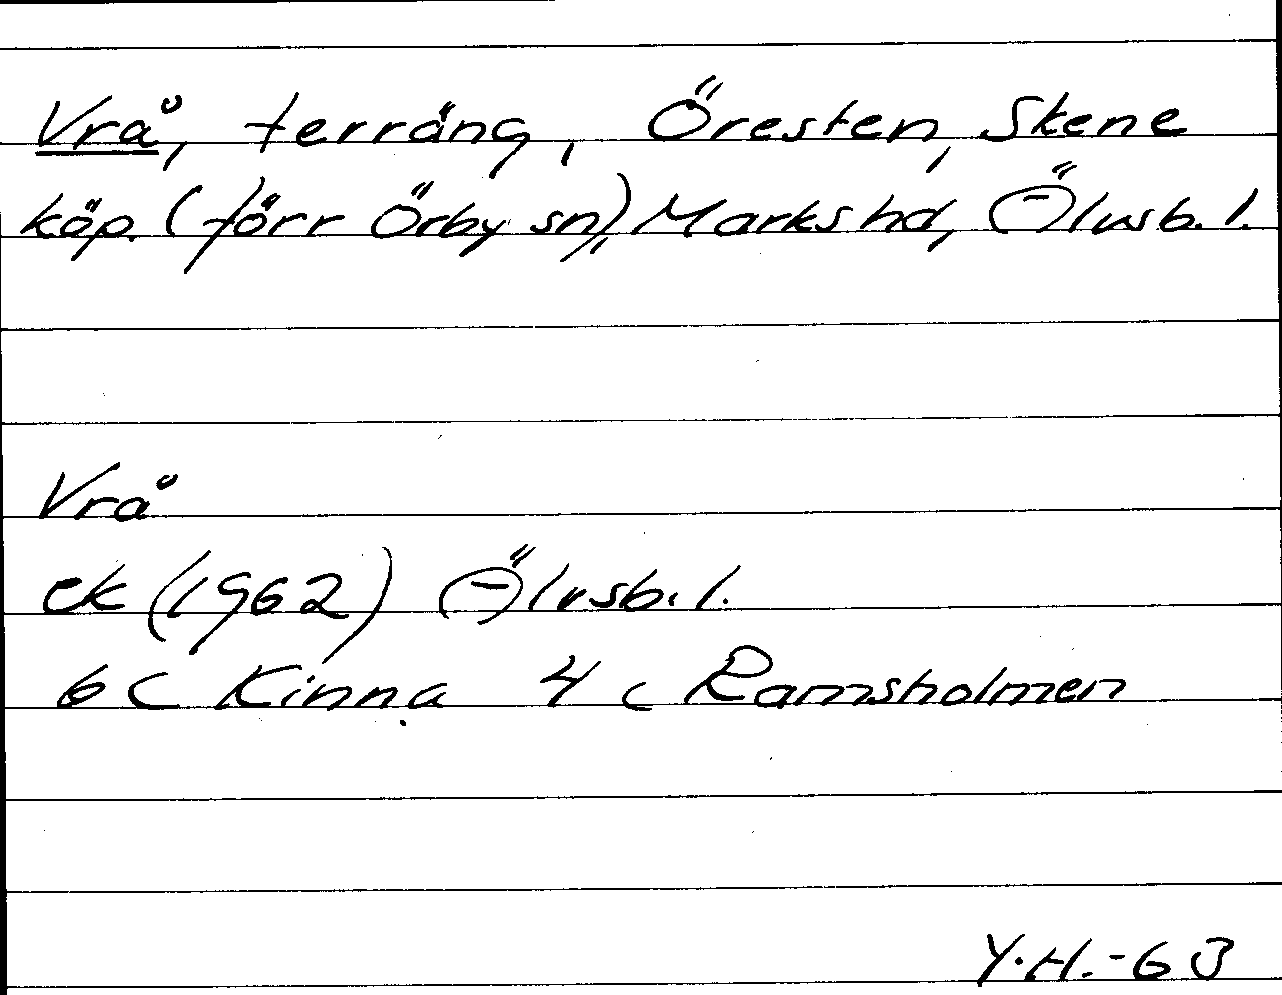 Vrå, terräng, Öresten, Skene
köp. (förr Örby sn), Marks hd, Älvsb. l.
Vrå
ek (1962) Älvsb. l.
6 c Kinna 4 c Ramsholmen
Y.H.-63